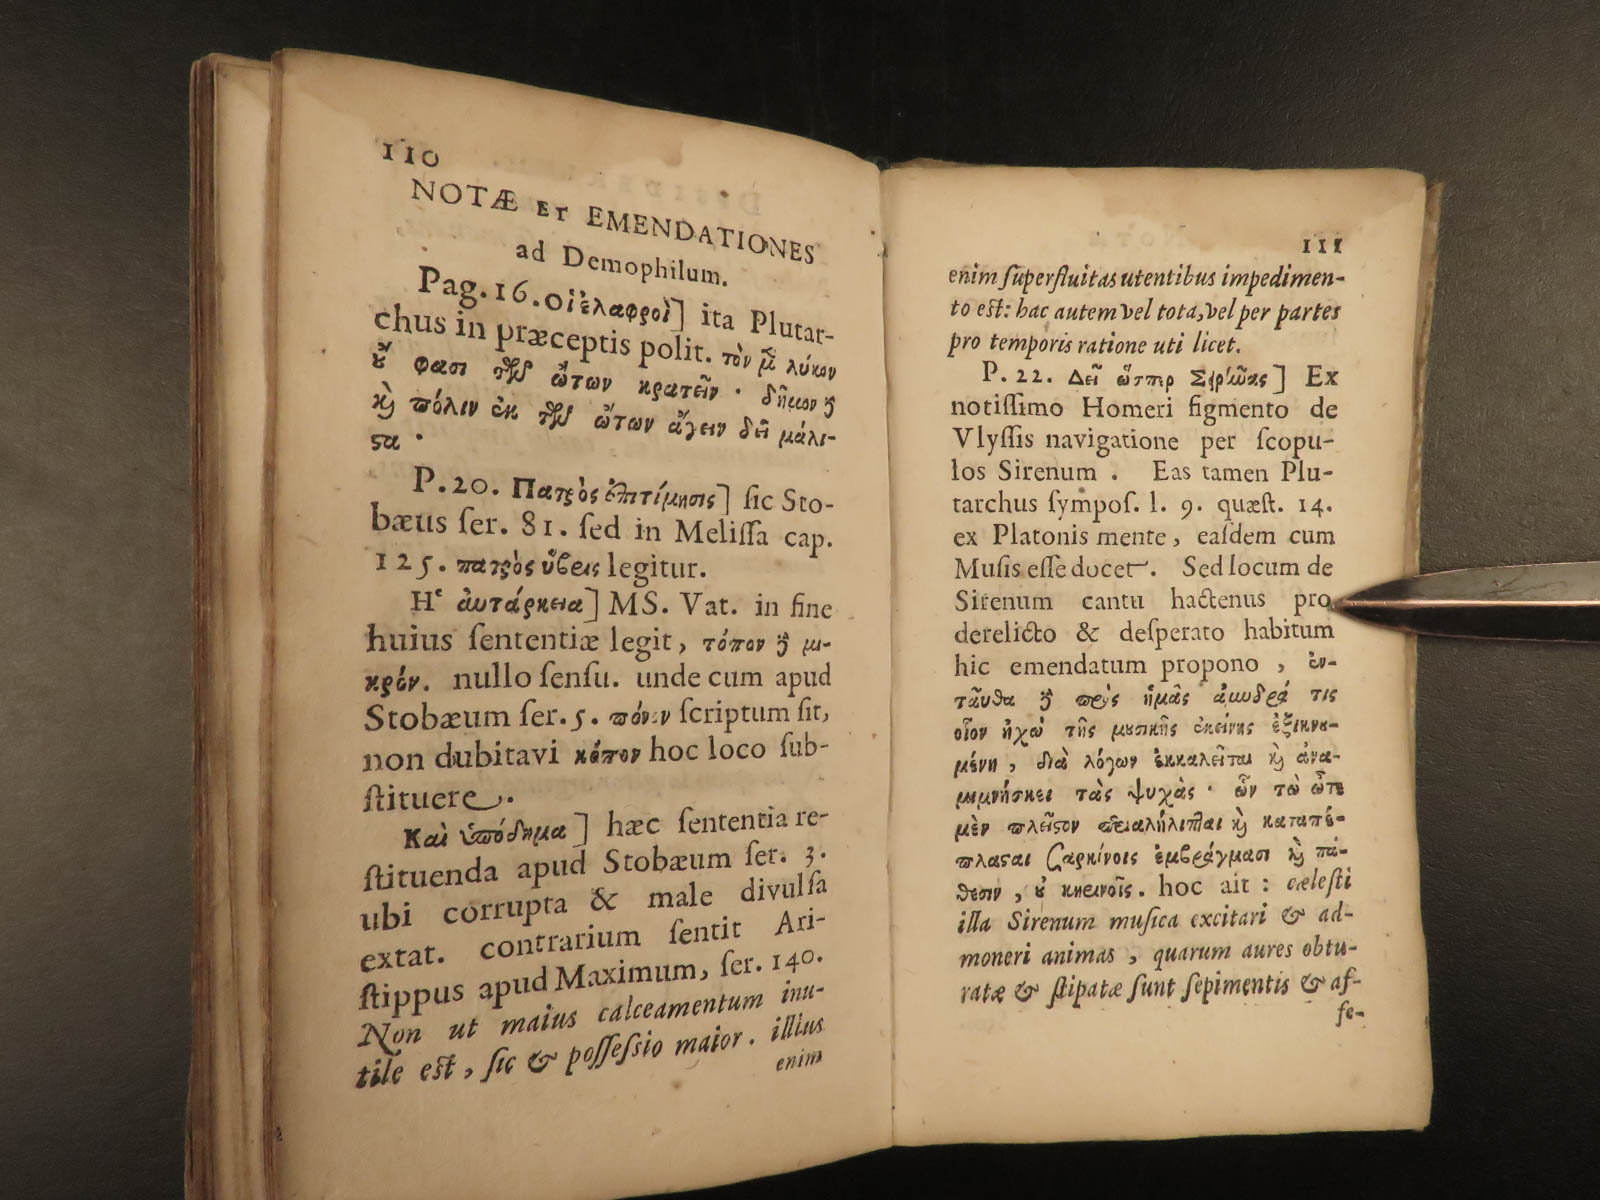 110
NOTÆ ET EMENDATIONES
ad Demophilum.
Pag. 16. οἱ ἐλαφροὶ] ita Plutar-
chus in præceptis polit. τὸν μ̃ λύκον
ȣ̓́ φασι τῶν ὤτων κρατεῖν · δῆμον ϗ
ϗ πόλιν ἐκ τῶν ὤτων ἄγειν δεῖ μάλι-
ϛα ·
P. 20. Πατρὸς ἐπιτίμησις] ſic Sto-
bæus ſer. 81. ſed in Meliſſa cap.
125. πατρὸς ὕβρεις legitur.
Ἡ αὐτάρκεια] MS. Vat. in fine
huius ſententiæ legit, τόπον μι-
κρόν. nullo ſenſu. unde cum apud
Stobæum ſer. 5. πόνον ſcriptum ſit,
non dubitavi κόπον hoc loco ſub-
ſtituere.
Καὶ ὑπόδημα] hæc ſententia re-
ſtituenda apud Stobæum ſer. 3.
ubi corrupta & male divulſa
extat. contrarium ſentit Ari-
ſtippus apud Maximum, ſer. 140.
Non ut maius calceamentum inu-
tile eſt, ſic & poſſeſsio maior. illius
enim
111
enim ſuperfluitas utentibus impedimen-
to eſt: hac autem vel tota, vel per partes
pro temporis ratione uti licet.
P. 22. Δεῖ ὥσπερ Σειρῆνας] Ex
notiſſimo Homeri figmento de
Vlyſſis navigatione per ſcopu-
los Sirenum . Eas tamen Plu-
tarchus ſympoſ. l. 9. quæſt. 14.
ex Platonis mente, eaſdem cum
Muſis eſſe docet. Sed locum de
Sirenum cantu hactenus pro
derelicto & deſperato habitum
hic emendatum propono, ἐν-
ταῦθα πρὸς ἡμᾶς ἀμυδρά τις
οἷον ἠχὼ τῆς μυσικῆς ἐκείνης ἐξικνυ-
μένη, διὰ λόγων ἐκκαλεῖται ϗ ἀνα-
μιμνήσκει τὰς ψυχάς · ὧν τὼ ὦτε
μὲν πλεῖϛον περιαλήλιπται ϗ καταπέ-
πλαϛαι σαρκίνοις ἐμφράγμασι ϗ πά-
θεσιν, ȣ̓ κηρινοῖς. hoc ait : cæleſti
illa Sirenum muſica excitari & ad-
moneri animas, quarum aures obtu-
ratæ & ſtipatæ ſunt ſepimentis & af-
fe-